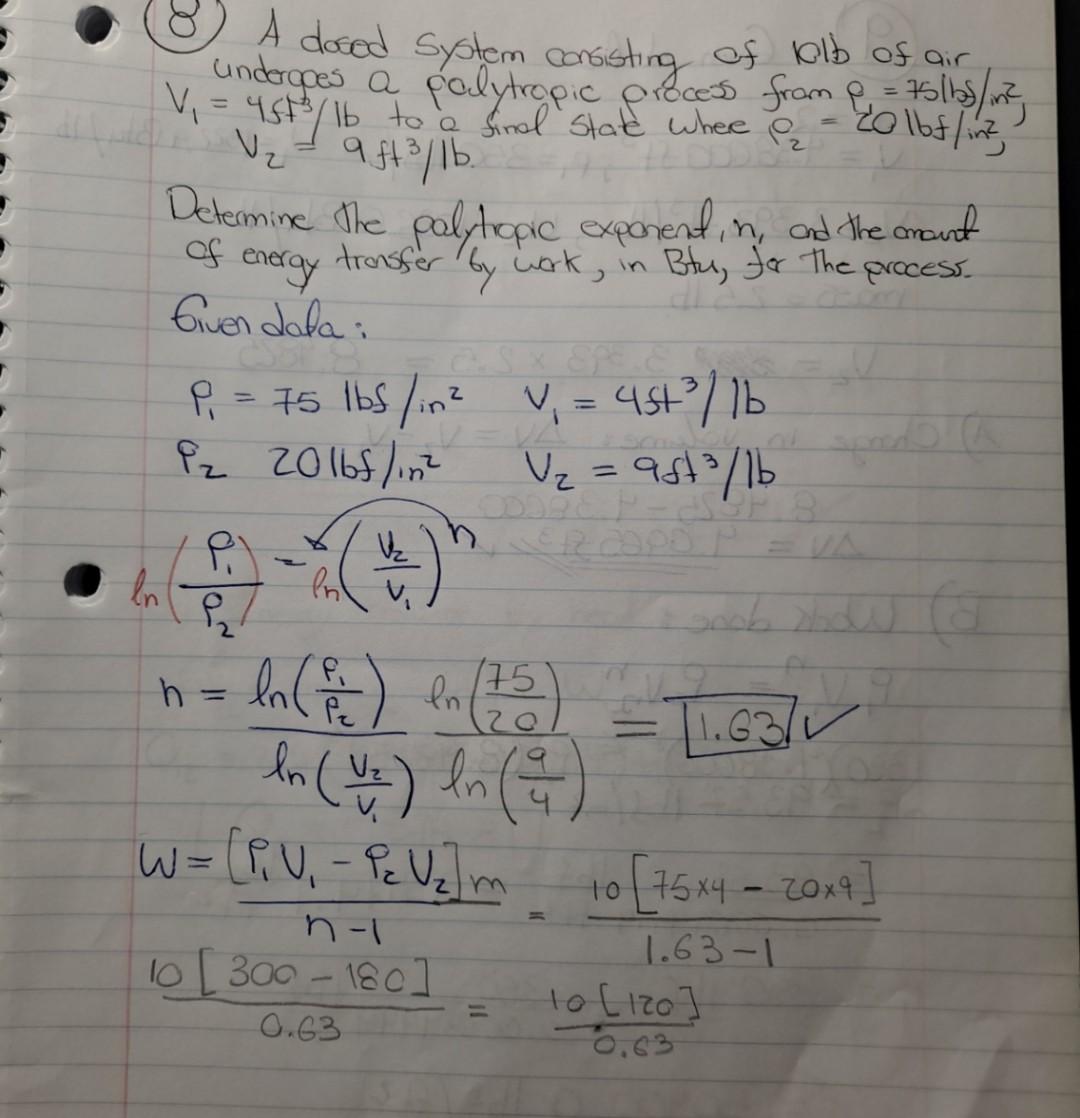 8 A closed System consisting of 10lb of air
undergoes a polytropic process from P₁ = 75 lbf/in²,
V₁ = 4ft³/lb to a final State where P₂ = 20 lbf/in²,
V₂ = 9 ft³/lb.
Determine the polytropic exponent, n, and the amount
of energy transfer by work, in Btu, for the process.
Given data:
P₁ = 75 lbf/in² V₁ = 4ft³/lb
P₂ 20 lbf/in² V₂ = 9ft³/lb
ln(P₁/P₂) = ln(V₂/V₁)ⁿ
n = ln(P₁/P₂)/ln(V₂/V₁) ln(75/20)/ln(9/4) = 1.63 ✓
W = [P₁V₁ - P₂V₂]m/n-1 = 10[75×4 - 20×9]/1.63-1
10[300 - 180]/0.63 = 10[120]/0.63